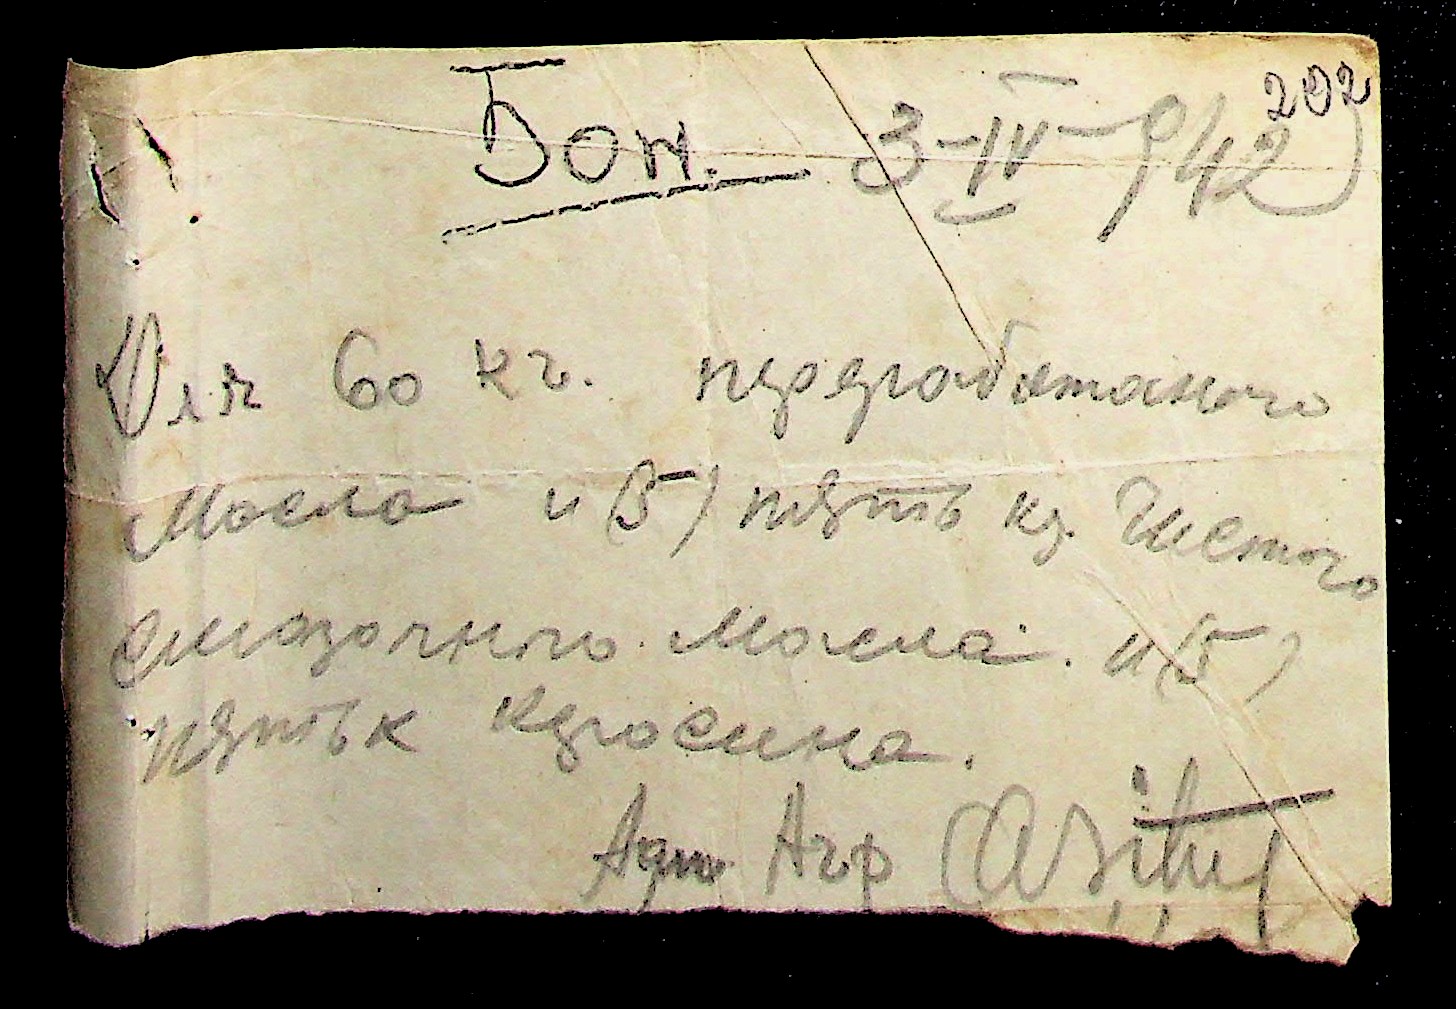 202
Бон. 3-IV-942
Для 60 кг. переработаного
Масла и (5) пять кг. Чистого
смазочного масла. и (5)
пять к керосина.
Адм Агр